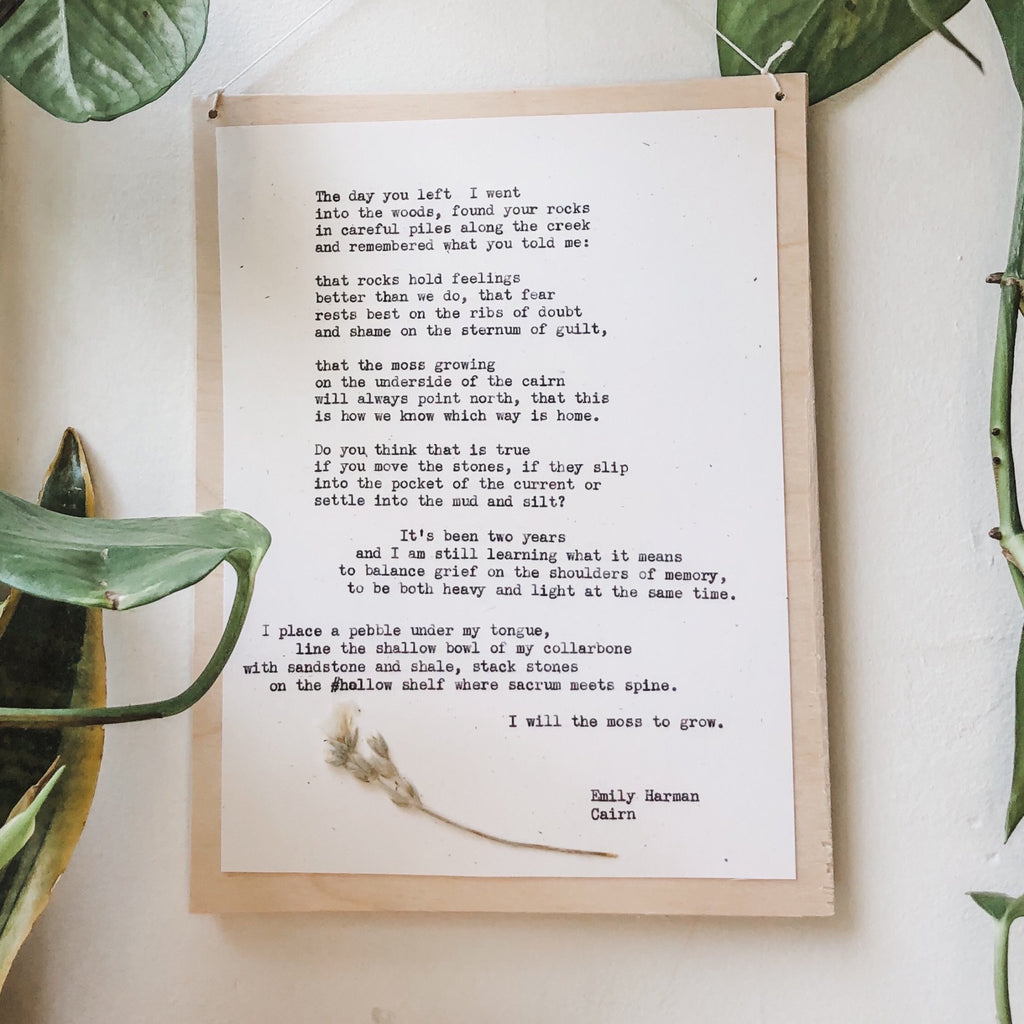 The day you left  I went
into the woods, found your rocks
in careful piles along the creek
and remembered what you told me:
that rocks hold feelings
better than we do, that fear
rests best on the ribs of doubt
and shame on the sternum of guilt,
that the moss growing
on the underside of the cairn
will always point north, that this
is how we know which way is home.
Do you think that is true
if you move the stones, if they slip
into the pocket of the current or
settle into the mud and silt?
It's been two years
and I am still learning what it means
to balance grief on the shoulders of memory,
to be both heavy and light at the same time.
I place a pebble under my tongue,
line the shallow bowl of my collarbone
with sandstone and shale, stack stones
on the #hollow shelf where sacrum meets spine.
I will the moss to grow.
Emily Harman
Cairn